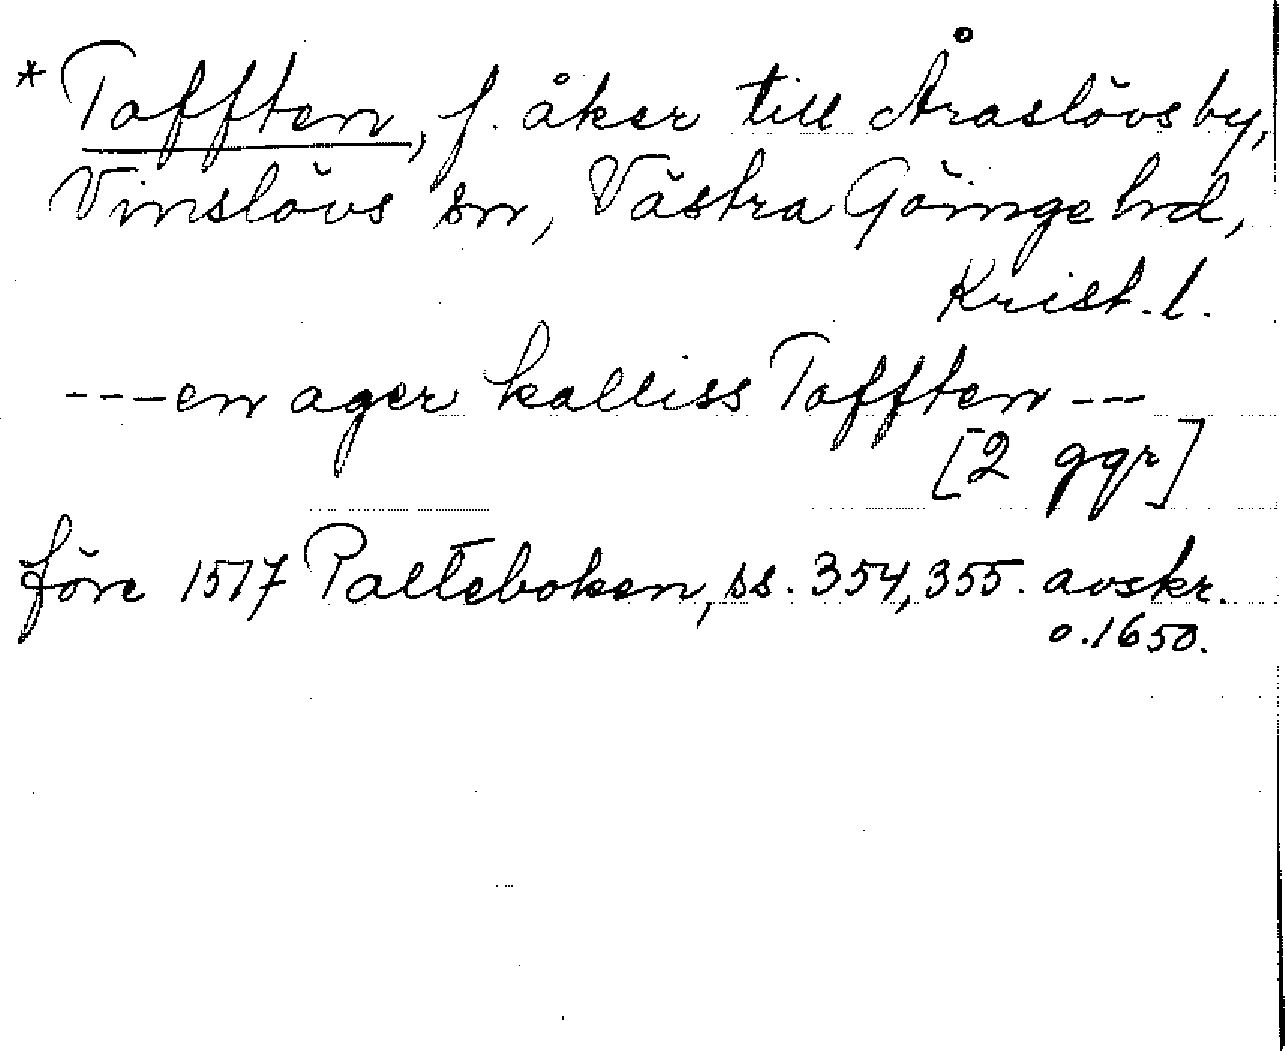 * Tofften, f. åker till Åraslövs by,
Vinslövs sn, Västra Göinge hd,
Krist. l.
---en ager kalliss Tofften---
[2 ggr]
före 1517 Palteboken, ss. 354, 355. avskr.
o. 1650.